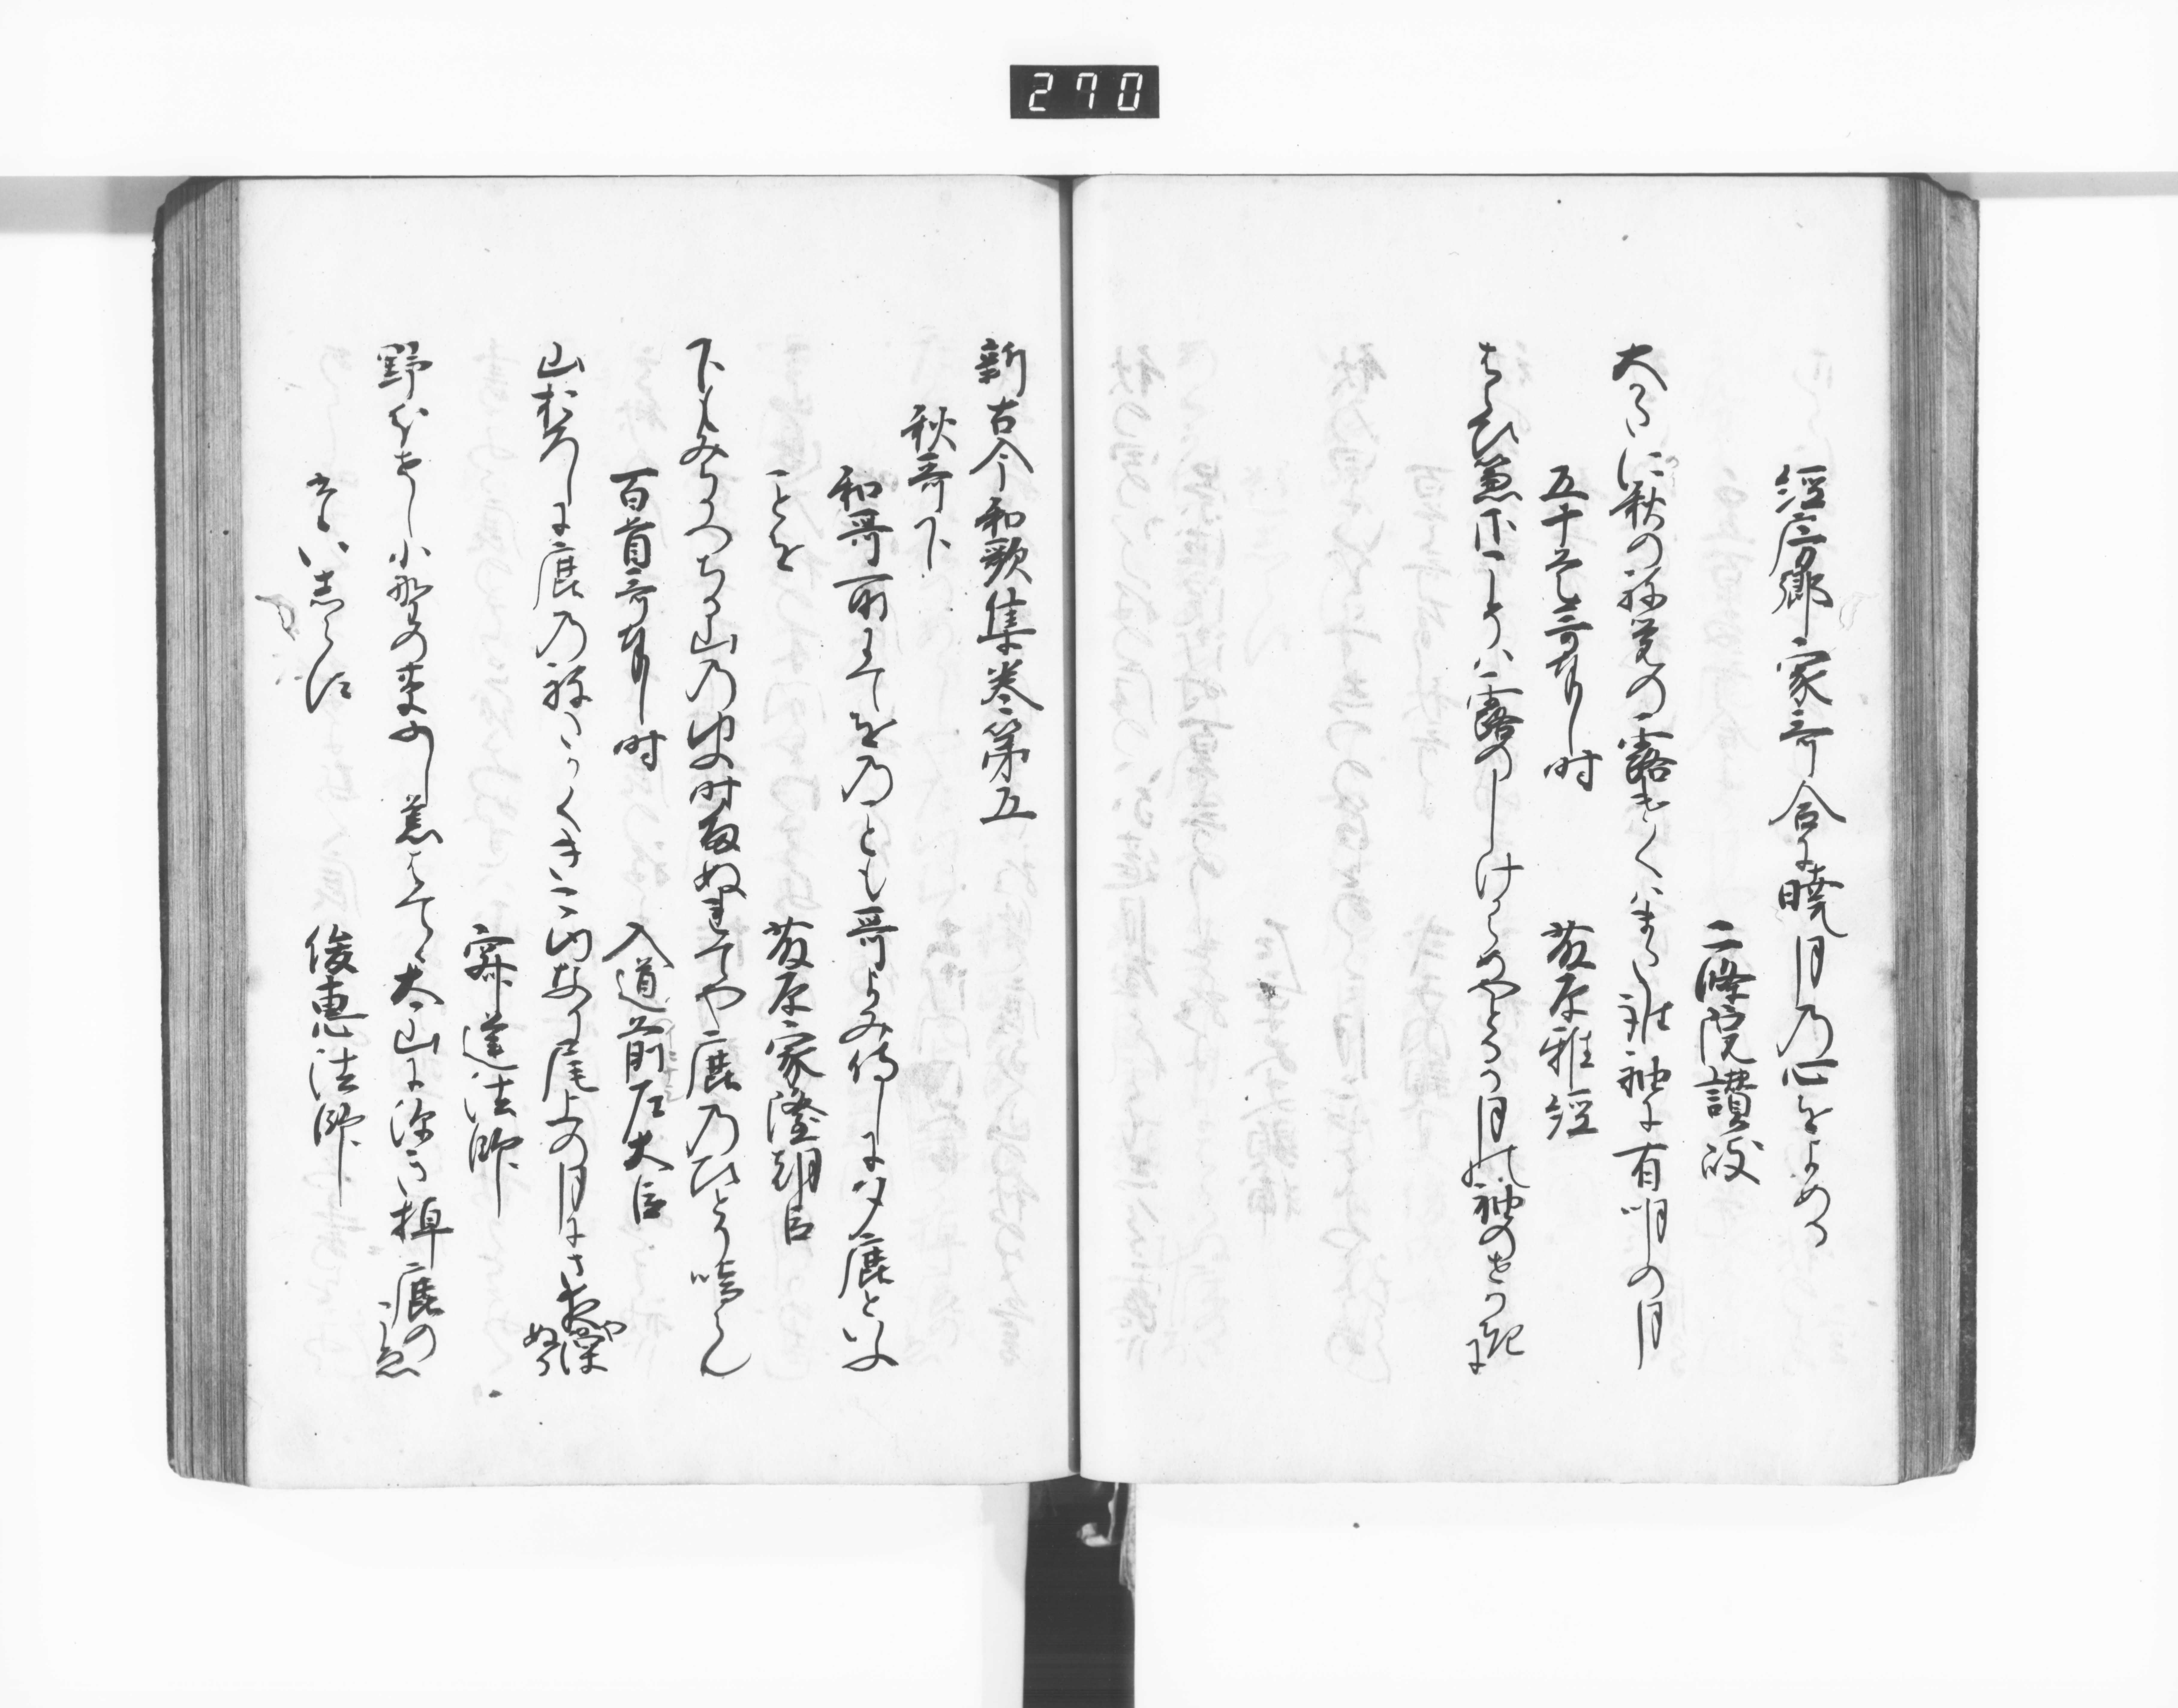 270
経房卿家哥合に暁月乃心をよめる
二條院讃岐
大かたに秋のね覚の露けくはまたたか袖に有明の月
五十首哥奉し時
藤原雅経
はらひかねさこそは露のしけからめやとるか月の袖のせはきに
新古今和歌集巻第五
秋哥下
和哥所にてをのことも哥よみ侍しに夕鹿といふ
ことを
藤原家隆朝臣
下もみちかつちる山乃夕時雨ぬれてや鹿乃ひとり鳴らん
百首哥奉し時
入道前左大臣
山おろしに鹿乃ねたかくきこゆなり尾上の月にさ夜や深ぬる
寂蓮法師
野分せし小野の草ふし荒はてゝ太山に深き棹鹿の声
たいしらす
俊恵法師